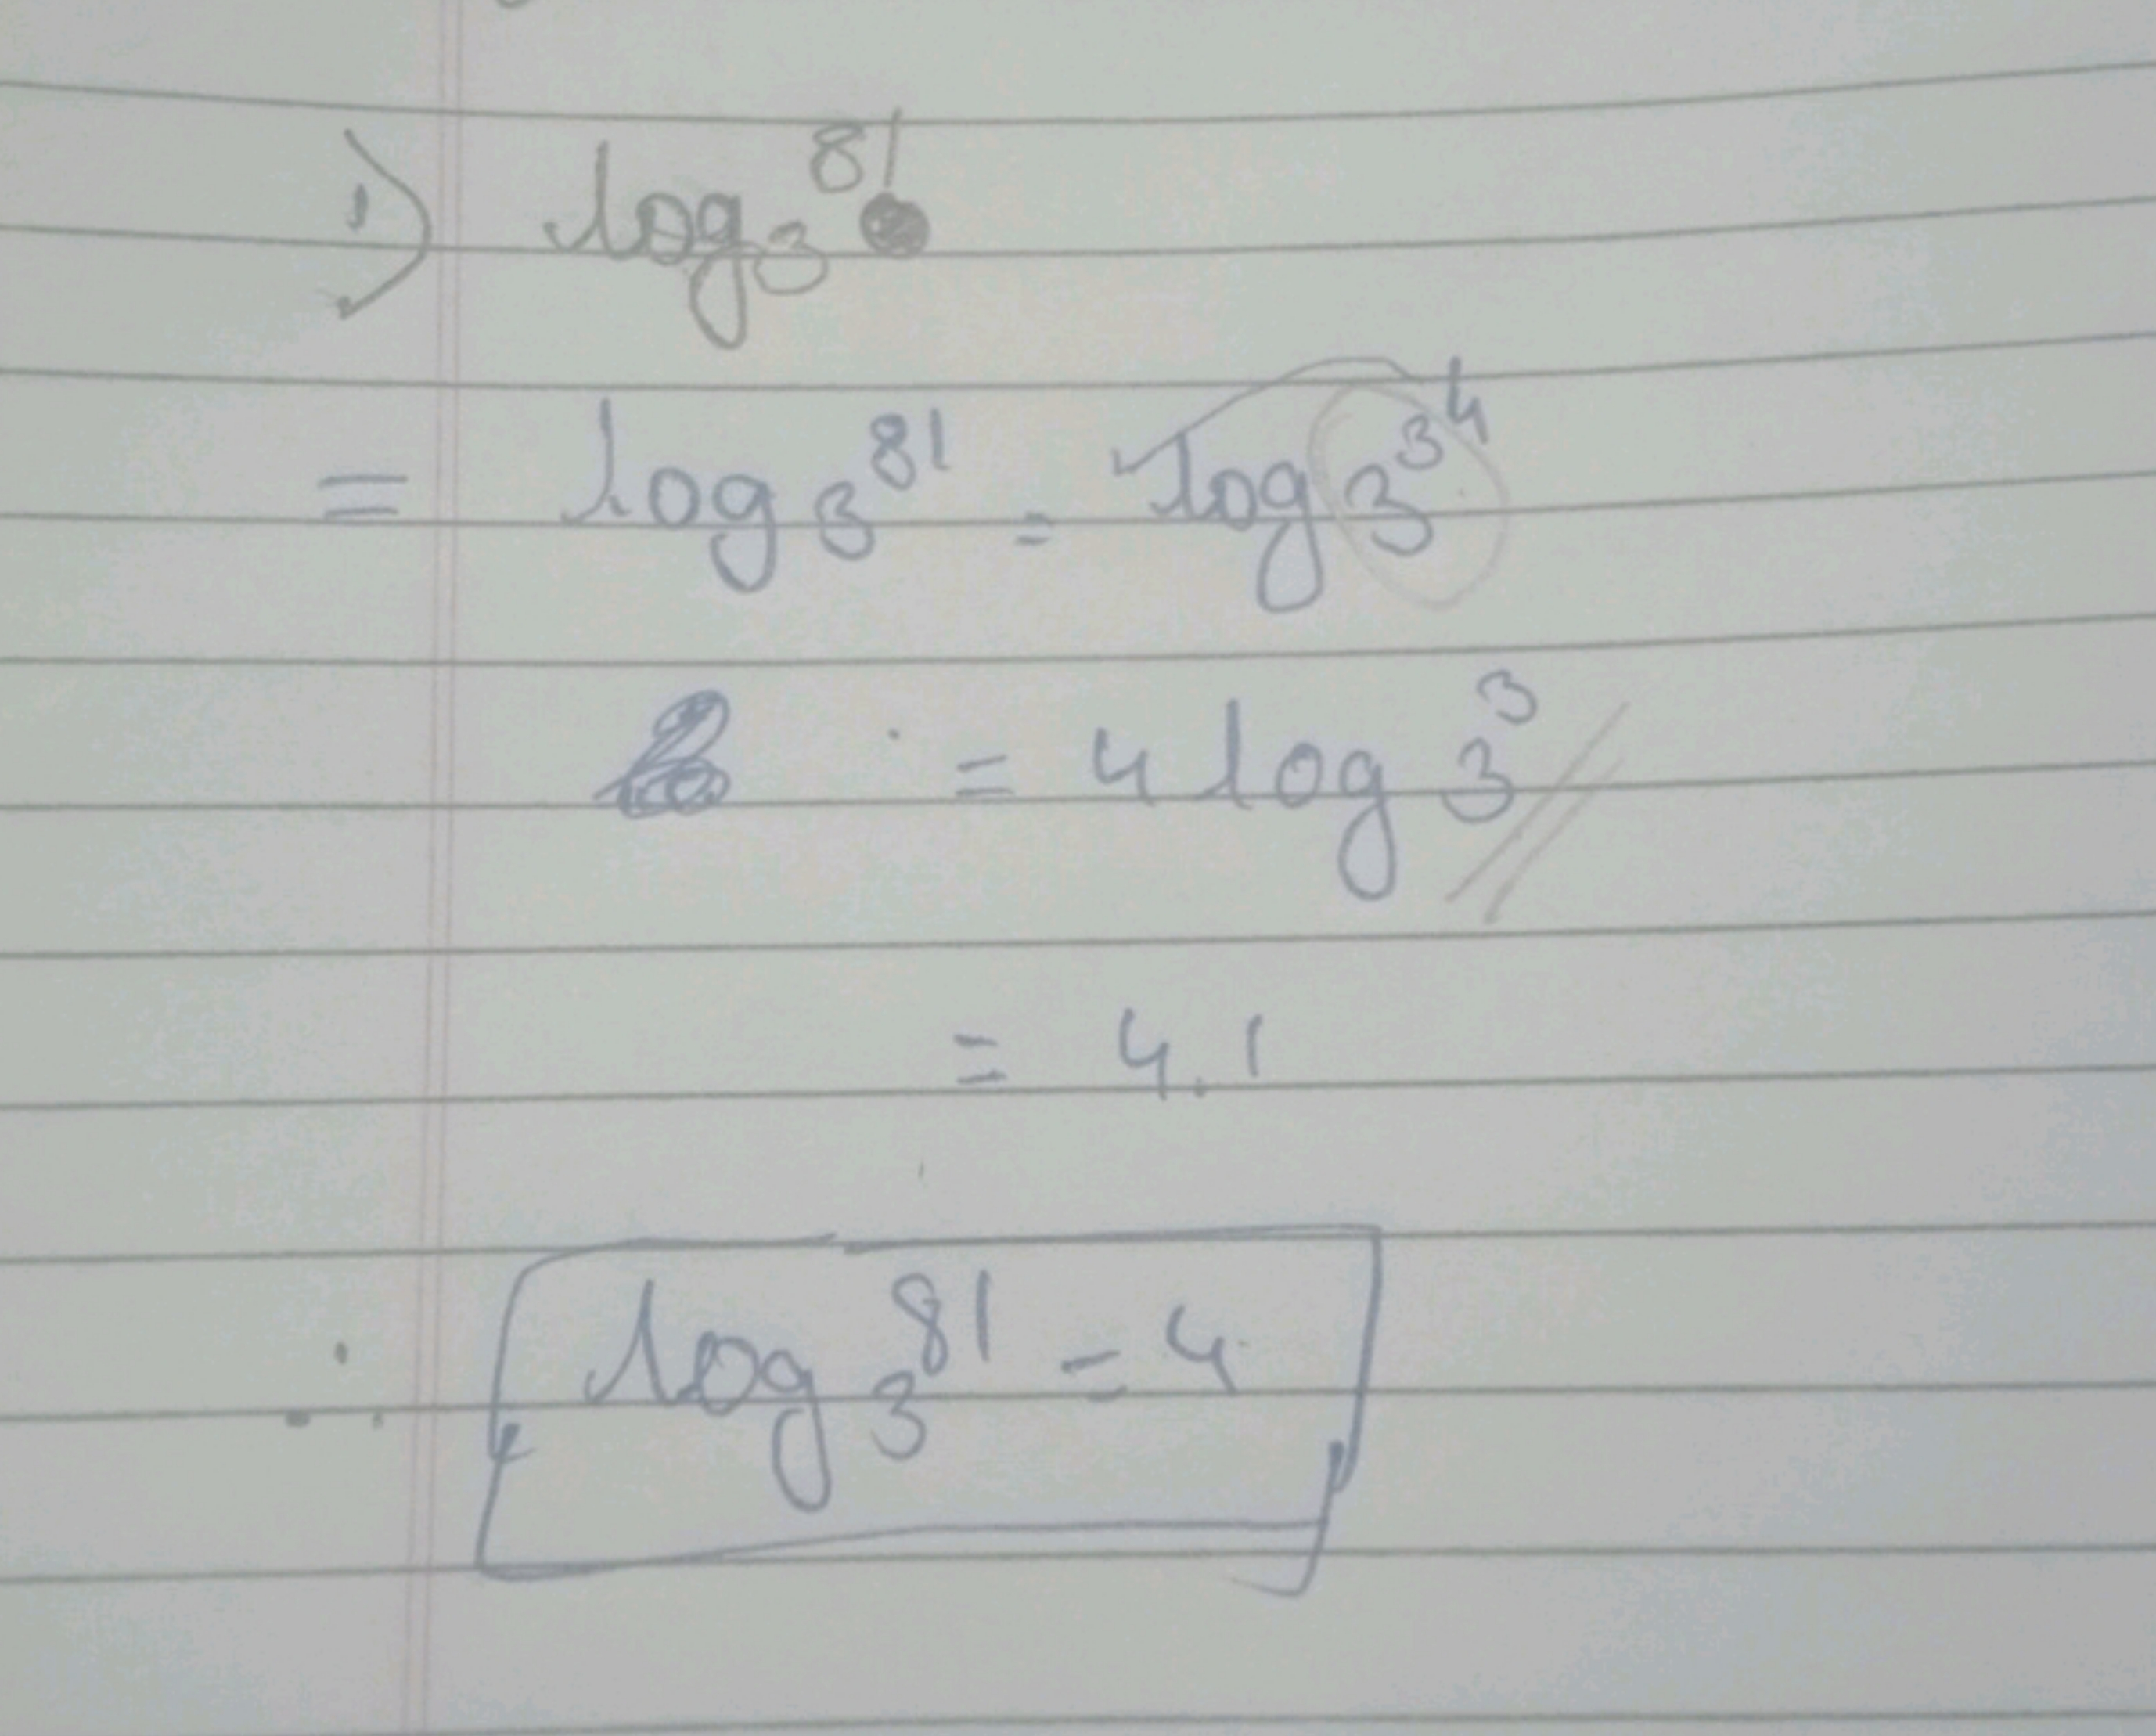 1) log₃⁸¹
= log₃⁸¹ = log 3^3^4
= 4 log 3^3
= 4.1
∴ log₃⁸¹ = 4